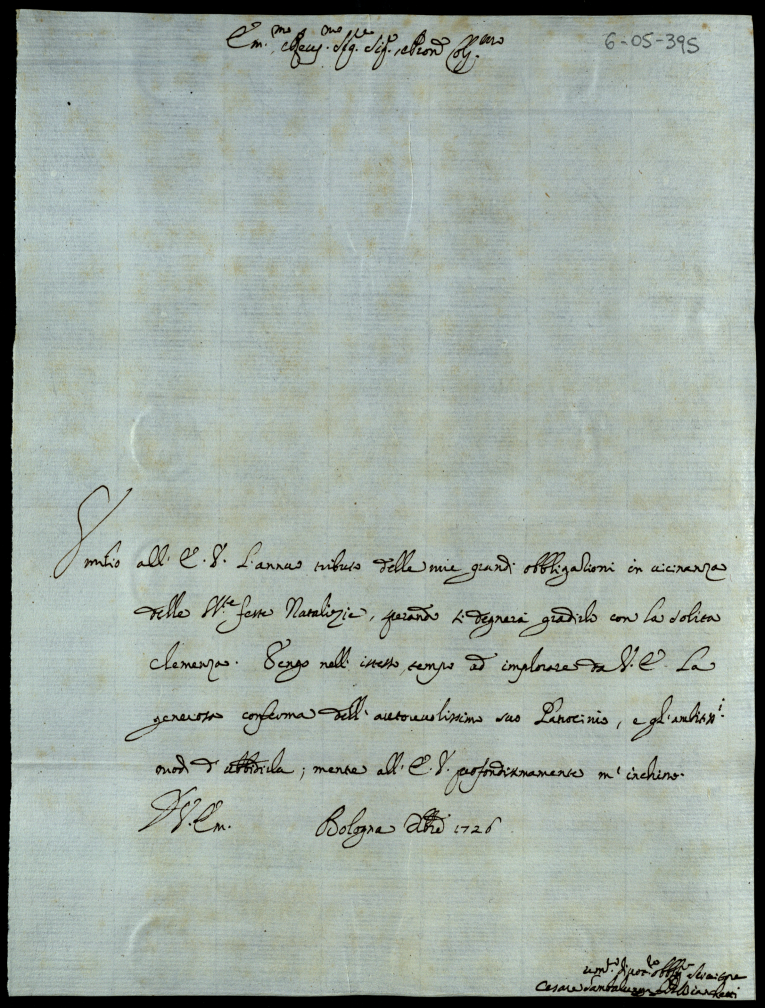 Em.mo e Rev.mo Sig.re Sig.re e Pron Coll.mo
6-05-395
Umilio all' E. V. l'annuo tributo delle mie grandi obbligazioni in vicinanza
delle S.te feste Natalizie, sperando si degnerà gradirlo con la solita
clemenza. Vengo nell' istesso tempo ad implorare da V. E. la
generosa conferma dell' autorevolissimo suo Patrocinio, e gl' ambitiss.i
onori d' ubbidirla; mentre all' E. V. profondissimamente m' inchino.
D V. Em. Bologna Xbre 1726
um.o obb.mo
Cesare Bianchetti